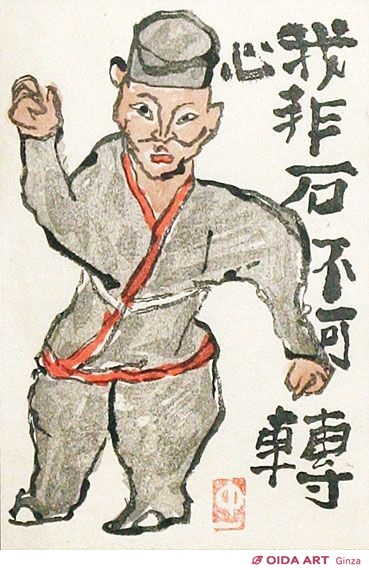 我心非石不可轉
OIDA ART Ginza